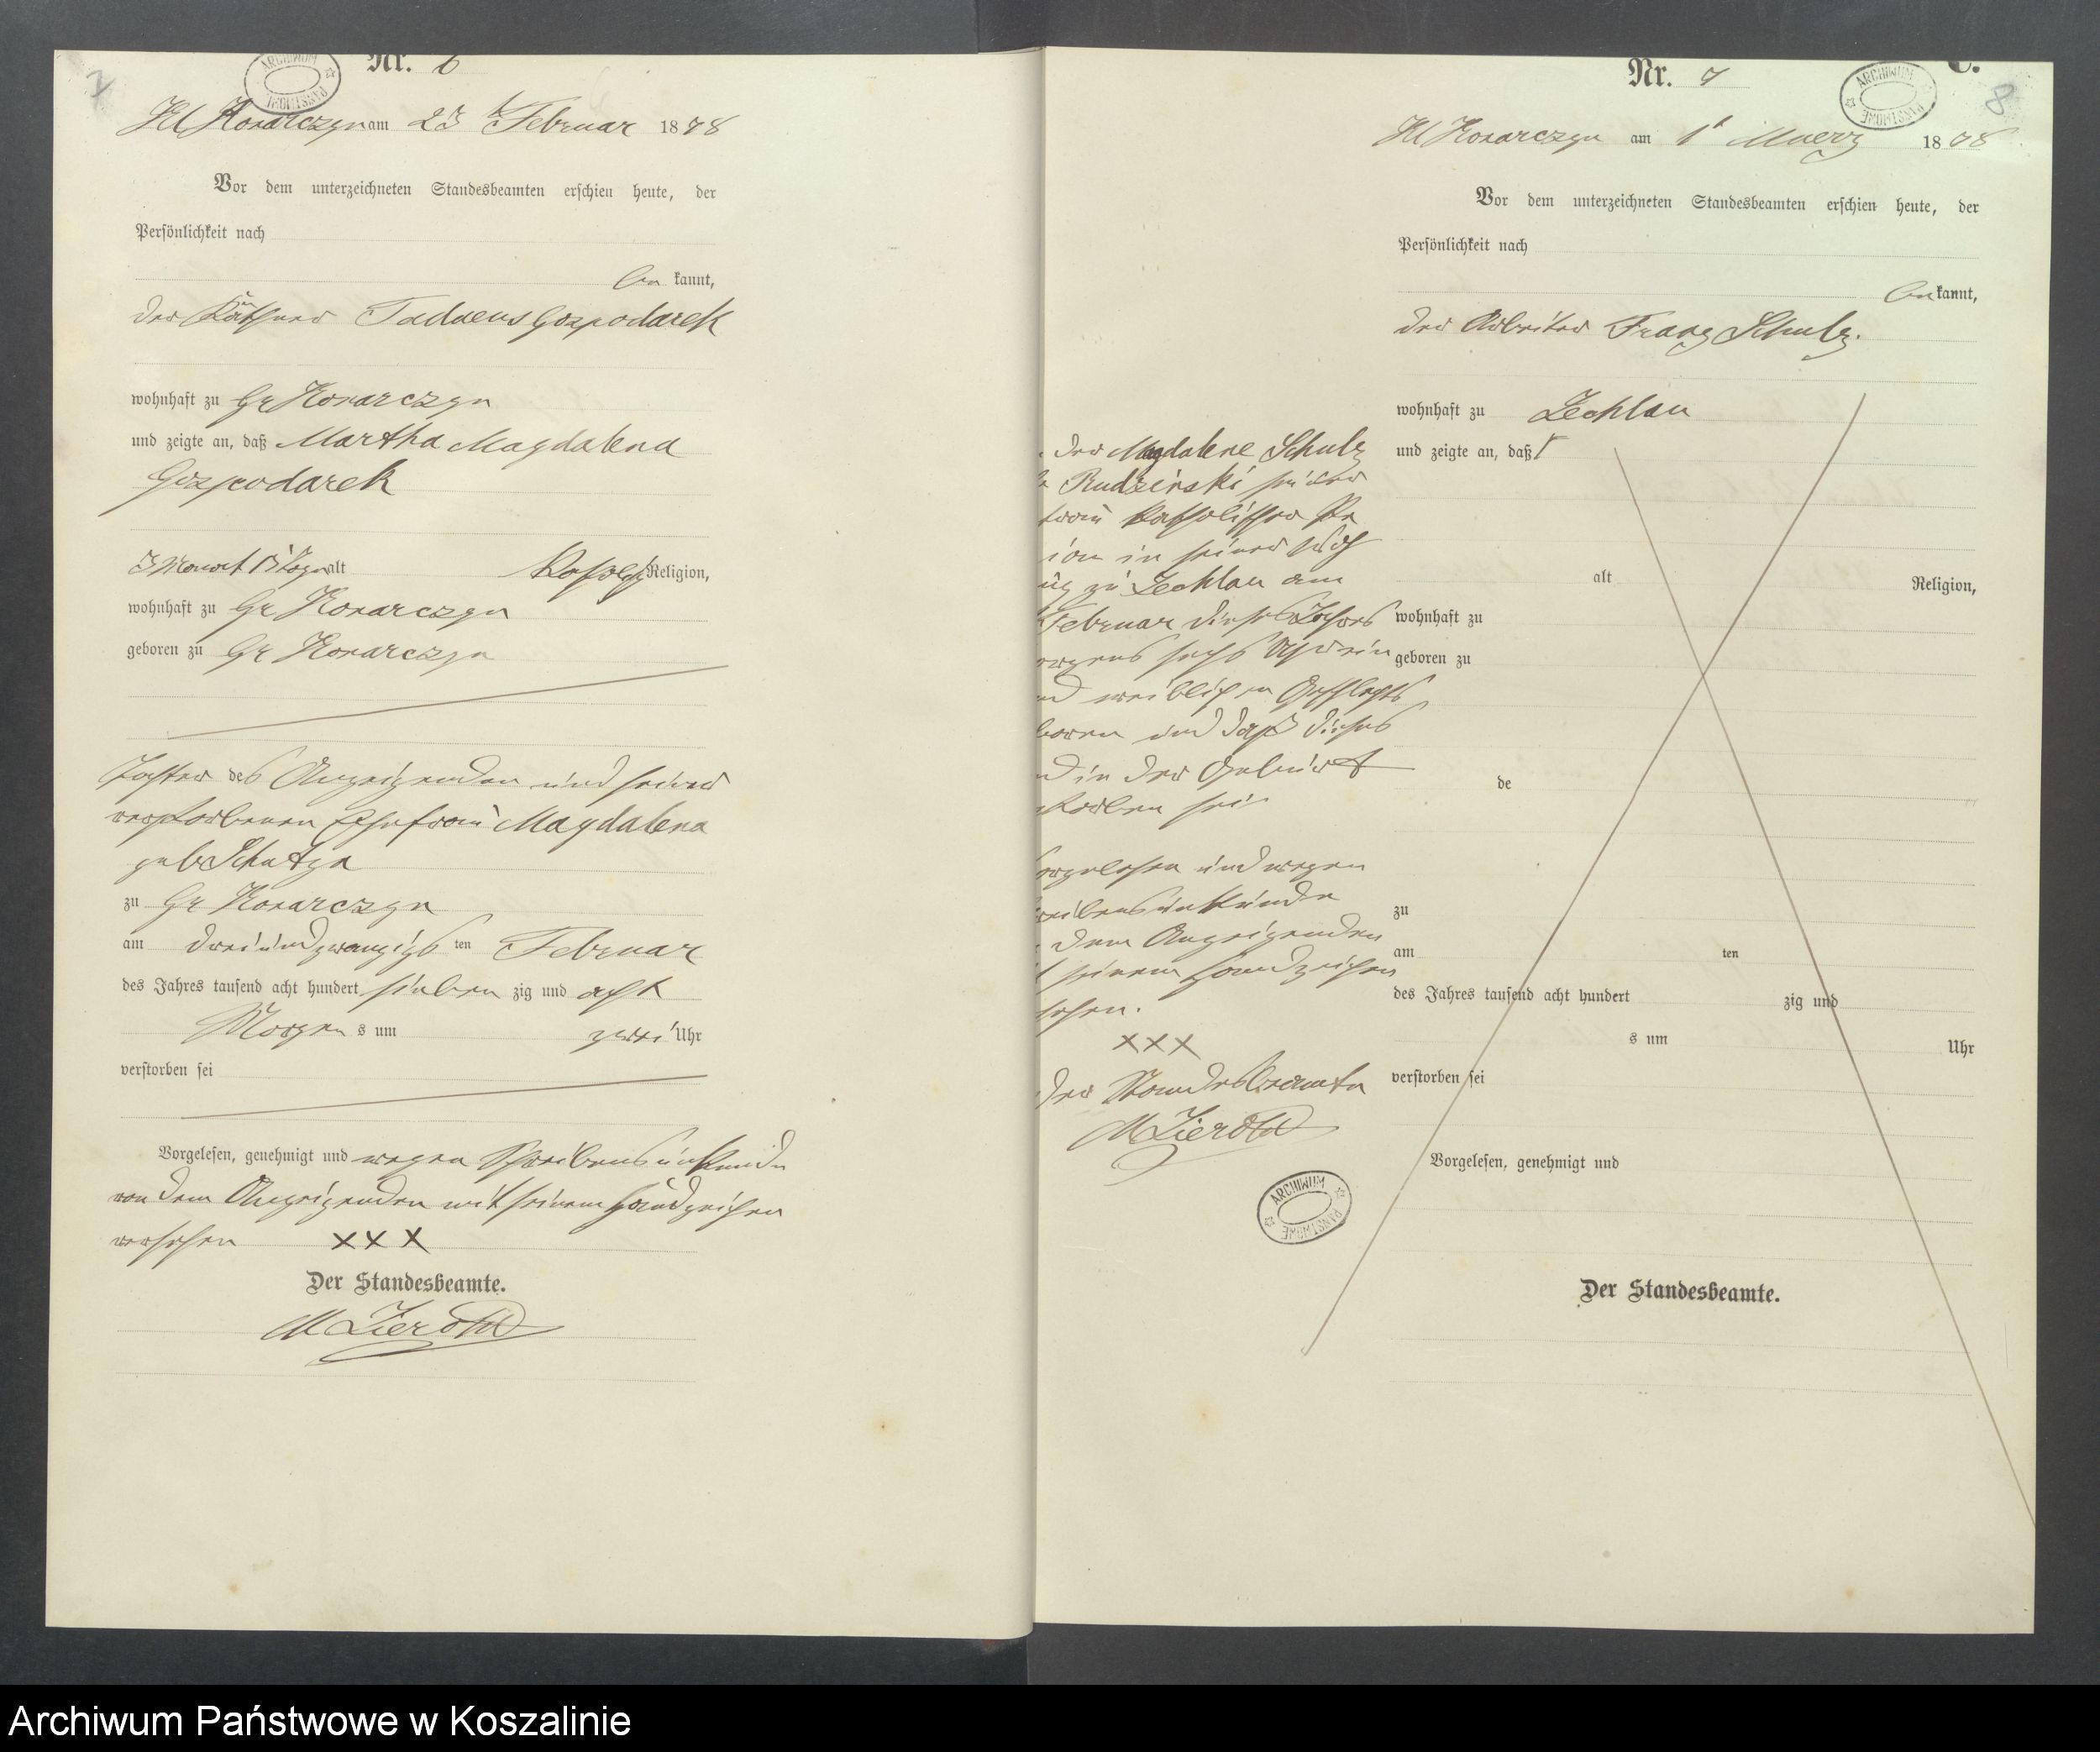 7
ARCHIWUM PAŃSTWOWE
Nr. 6
Kl Konarczyn am 23 t Februar 1878
Vor dem unterzeichneten Standesbeamten erschien heute, der
Persönlichkeit nach
be kannt,
der Käthner Tadaeus Gospodarek
wohnhaft zu Gr Konarczyn
und zeigte an, daß Martha Magdalena
Gospodarek
3 Monat Tage alt kathol Religion,
wohnhaft zu Gr Konarczyn
geboren zu Gr Konarczyn
Tochter des Anzeigenden und seiner
verstorbenen Ehefrau Magdalena
geb
zu Gr Konarczyn
am dreiundzwanzigs ten Februar
des Jahres tausend acht hundert sieben zig und acht
Morgen s um zwei Uhr
verstorben sei
Vorgelesen, genehmigt und wegen Schreibensunkunde
von dem Anzeigenden mit seinem Handzeichen
versehen XXX
Der Standesbeamte.
M Zierold
C.
8
ARCHIWUM PAŃSTWOWE
Nr. 7
Kl Konarczyn am 1t Maerz 1878
Vor dem unterzeichneten Standesbeamten erschien heute, der
Persönlichkeit nach
be kannt,
der Arbeiter Franz Schulz.
wohnhaft zu Zechlau
und zeigte an, daß
alt Religion,
wohnhaft zu
geboren zu
de
zu
am ten
des Jahres tausend acht hundert zig und
s um Uhr
verstorben sei
Vorgelesen, genehmigt und
Der Standesbeamte.
der Magdalene Schulz
Rudzinski seiner
frau katholischer Re
ion in seiner
zu Zechlau am
Februar dieses Jahres
orgens sechs Uhr ein
nd weiblichen Geschlechts
boren und daß dieses
nd in der Geburt
storben sei
orgelesen und wegen
reibensunkunde
dem Anzeigenden
t seinem Handzeichen
sehen.
XXX
der Standesbeamte
M Zierold
ARCHIWUM PAŃSTWOWE
Archiwum Państwowe w Koszalinie